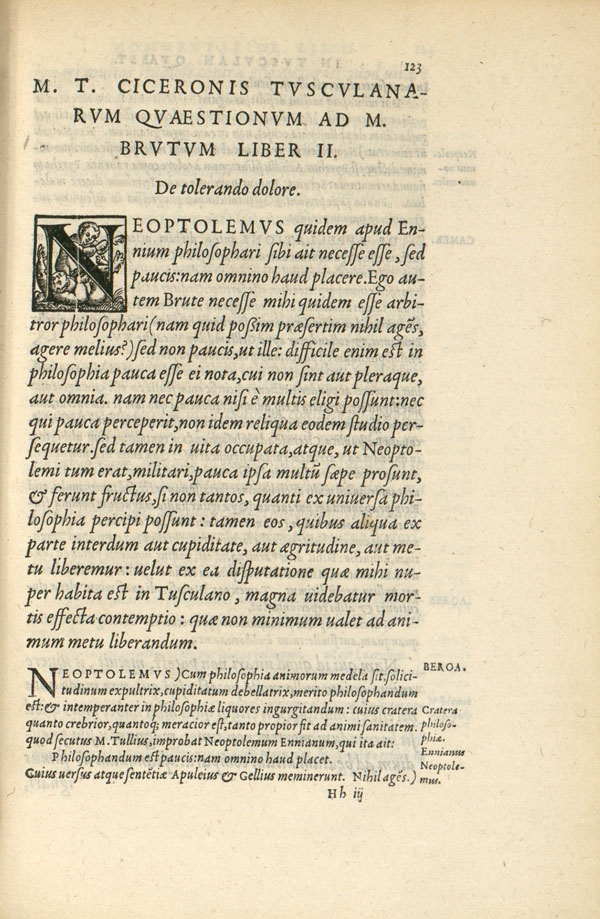 123
M. T. CICERONIS TVSCVLANA-
RVM QVAESTIONVM AD M.
BRVTVM LIBER II.
De tolerando dolore.
NEOPTOLEMVS quidem apud En-
nium philoſophari ſibi ait neceſſe eſſe, ſed
paucis: nam omnino haud placere. Ego au-
tem Brute neceſſe mihi quidem eſſe arbi-
tror philoſophari (nam quid poßim præſertim nihil agẽs,
agere melius?) ſed non paucis, ut ille: difficile enim eſt in
philoſophia pauca eſſe ei nota, cui non ſint aut pleraque,
aut omnia. nam nec pauca niſi è multis eligi poſſunt: nec
qui pauca perceperit, non idem reliqua eodem ſtudio per-
ſequetur. ſed tamen in uita occupata, atque, ut Neopto-
lemi tum erat, militari, pauca ipſa multũ ſæpe proſunt,
& ferunt fructus, ſi non tantos, quanti ex uniuerſa phi-
loſophia percipi poſſunt: tamen eos, quibus aliqua ex
parte interdum aut cupiditate, aut ægritudine, aut me-
tu liberemur: uelut ex ea diſputatione quæ mihi nu-
per habita eſt in Tuſculano, magna uidebatur mor-
tis effecta contemptio: quæ non minimum ualet ad ani-
mum metu liberandum.
BEROA.
NEOPTOLEMVS) Cum philoſophia animorum medela ſit, ſolici-
tudinum expultrix, cupiditatum debellatrix, merito philoſophandum
eſt: & intemperanter in philoſophiæ liquores ingurgitandum: cuius cratera
quanto crebrior, quantoq; meracior eſt, tanto propior fit ad animi ſanitatem.
quod ſecutus M. Tullius, improbat Neoptolemum Ennianum, qui ita ait:
Philoſophandum eſt paucis: nam omnino haud placet.
Cuius uerſus atque ſentẽtiæ Apuleius & Gellius meminerunt. Nihil agẽs.)
Cratera
philoſo-
phiæ.
Ennianus
Neoptole-
mus.
Hh iij